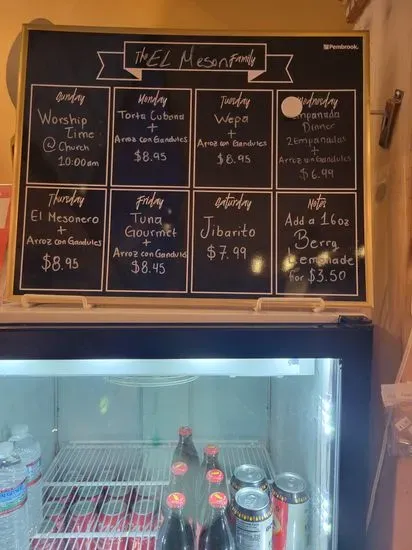 The EL Meson Family
Pembrook.
Sunday
Worship
Time
@ Church
10:00am
Monday
Torta Cubana
+
Arroz con Gandules
$8.95
Tuesday
Wepa
+
Arroz con Gandules
$8.95
Wednesday
Empanada
Dinner
2 Empanadas
+
Arroz con Gandules
$6.99
Thursday
El Mesonero
+
Arroz con Gandules
$8.95
Friday
Tuna
Gourmet
+
Arroz con Gandules
$8.45
Saturday
Jibarito
$7.99
Notes
Add a 16oz
Berry
Lemonade
for $3.50